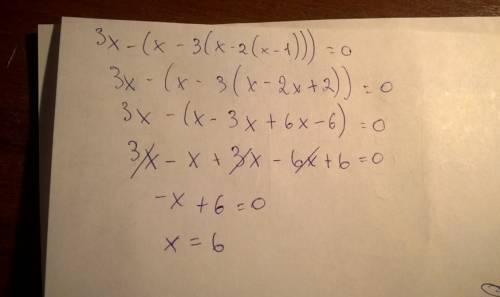 3x - (x - 3(x - 2(x - 1))) = 0
3x - (x - 3(x - 2x + 2)) = 0
3x - (x - 3x + 6x - 6) = 0
3x - x + 3x - 6x + 6 = 0
-x + 6 = 0
x = 6